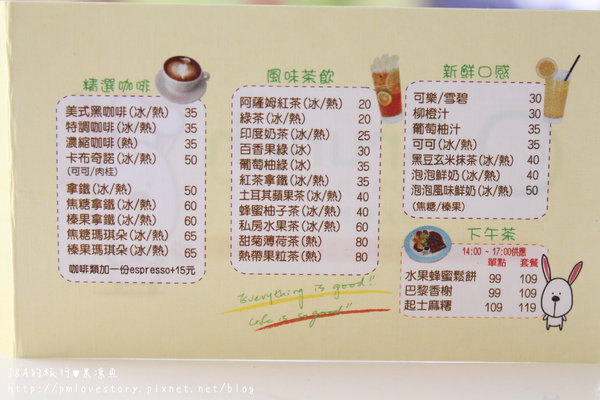 精選咖啡
美式黑咖啡(冰/熱) 35
特調咖啡(冰/熱) 35
濃縮咖啡(熱) 35
卡布奇諾(冰/熱) 50
(可可/肉桂)
拿鐵(冰/熱) 50
焦糖拿鐵(冰/熱) 60
榛果拿鐵(冰/熱) 60
焦糖瑪琪朵(冰/熱) 65
榛果瑪琪朵(冰/熱) 65
咖啡類加一份espresso+15元
風味茶飲
阿薩姆紅茶(冰/熱) 20
綠茶(冰/熱) 20
印度奶茶(冰/熱) 25
百香果綠(冰) 30
葡萄柚綠(冰) 35
紅茶拿鐵(冰/熱) 35
土耳其蘋果茶(冰/熱) 40
蜂蜜柚子茶(冰/熱) 40
私房水果茶(冰/熱) 60
甜菊薄荷茶(熱) 80
熱帶果粒茶(熱) 80
Everything is good!!
Life is so good"
新鮮口感
可樂/雪碧 30
柳橙汁 30
葡萄柚汁 35
可可(冰/熱) 35
黑豆玄米抹茶(冰/熱) 40
泡泡鮮奶(冰/熱) 40
泡泡風味鮮奶(冰/熱) 50
(焦糖/榛果)
下午茶
14:00 ~ 17:00供應
單點 套餐
水果蜂蜜鬆餅 99 109
巴黎香榭 99 109
起士麻糬 109 119
http://pmlovestory.pixnet.net/blog